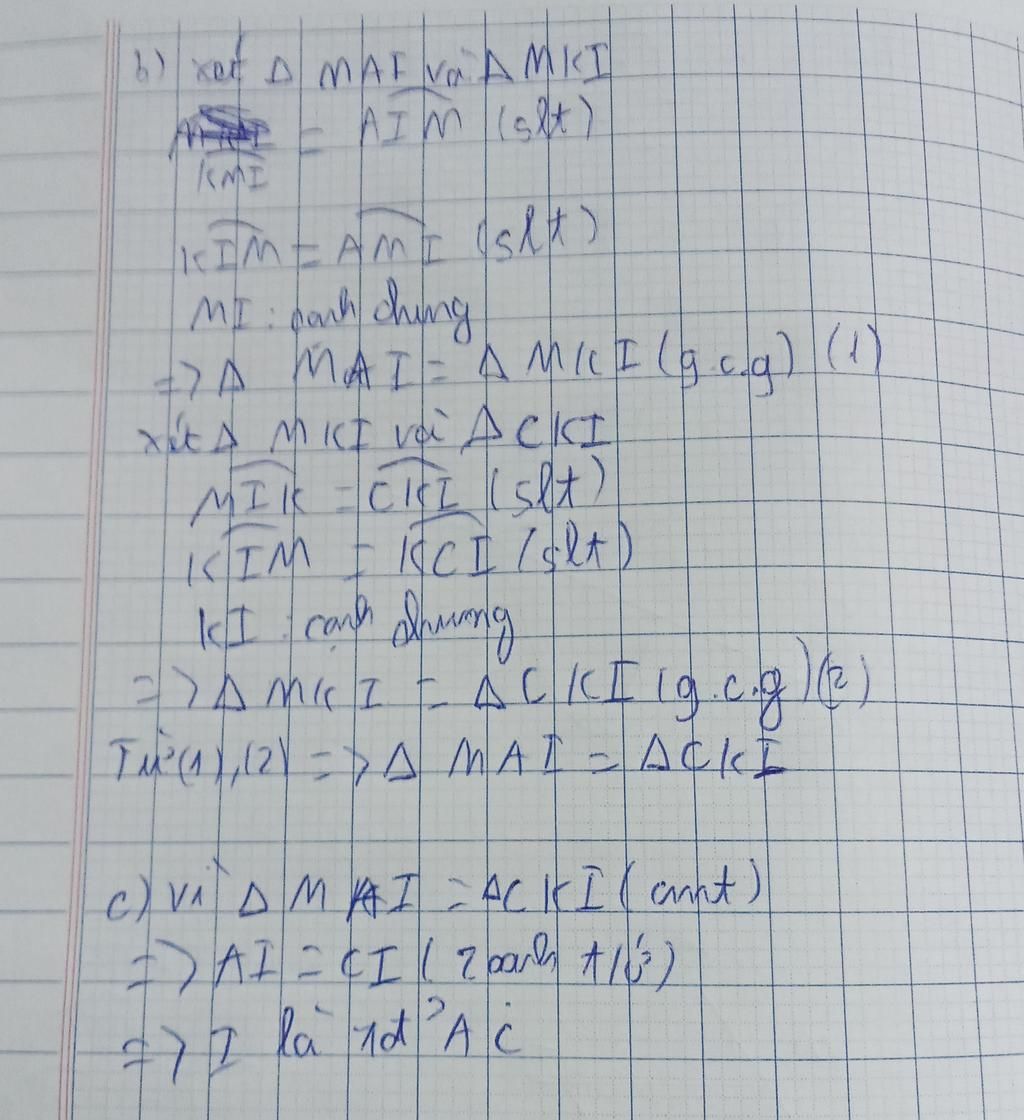 b) xét Δ MAI và Δ MKI
= AIM (slt)
KMI
KIM = AMI (slt)
MI : cạnh chung
=> Δ MAI = Δ MKI (g.c.g) (1)
xét Δ MKI và Δ CKI
MIK = CKI (slt)
KIM = KCI (slt)
KI : cạnh chung
=> Δ MKI = Δ CKI (g.c.g) (2)
Từ (1), (2) => Δ MAI = Δ CKI
c) Vì Δ MAI = ΔCKI (cmt)
=> AI = CI (2 cạnh t/ứ)
=> I là tđ AC